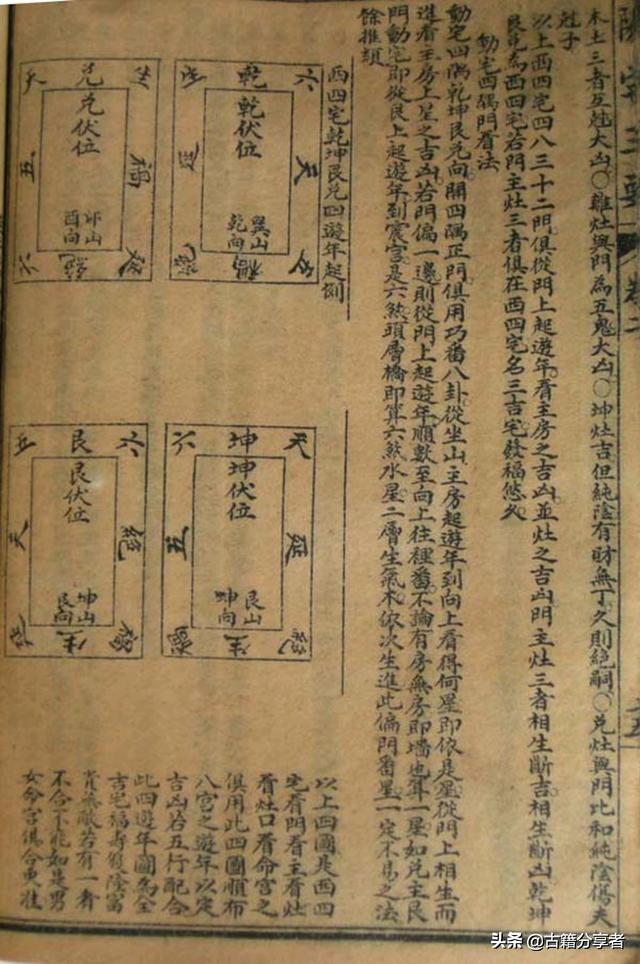 陽宅三要 卷二
木土三者互尅大凶○離灶與門為五鬼大凶○坤灶吉但純陰有財無丁久則絕嗣○兌灶與門比和純陰傷夫
尅子
以上西四宅四八三十二門俱從門上起遊年看主房之吉凶並灶之吉凶門主灶三者相生斷吉相生斷凶乾坤
艮兌為西四宅若門主灶三者俱在西四宅名三吉宅發福悠久
動宅西隅門看法
動宅四隅乾坤艮兌向開四隅正門俱用巧番八卦從坐山主房起遊年到向上看得何星即依是星從門上相生而
進看主房上星之吉凶若門偏一邊則從門上起遊年順數至向上往裡番不論有房無房即墻也算一星如兌主艮
門動宅即從艮上起遊年到震宮是六煞頭層橋即算六煞水星二層生氣木依次生進此偏門番星一定不易之法
餘推類
西四宅乾坤艮兌四遊年起例
六 天 五 禍 絕 延 生
乾
乾伏位
巽山
乾向
生 禍 延 絕 六 五 天
兌
兌伏位
卯山
酉向
天 延 絕 生 禍 五 六
坤
坤伏位
艮山
坤向
六 絕 禍 生 延 天 五
艮
艮伏位
坤山
艮向
以上四圖是西四
宅看門看主看灶
看灶口看命宮之
俱用此四圖順布
八宮之遊年以定
吉凶若五行配合
此四遊年圖為全
吉宅福壽雙陰富
貴無敵若有一者
不合不能如是男
女命宮俱合更准
头条 @古籍分享者